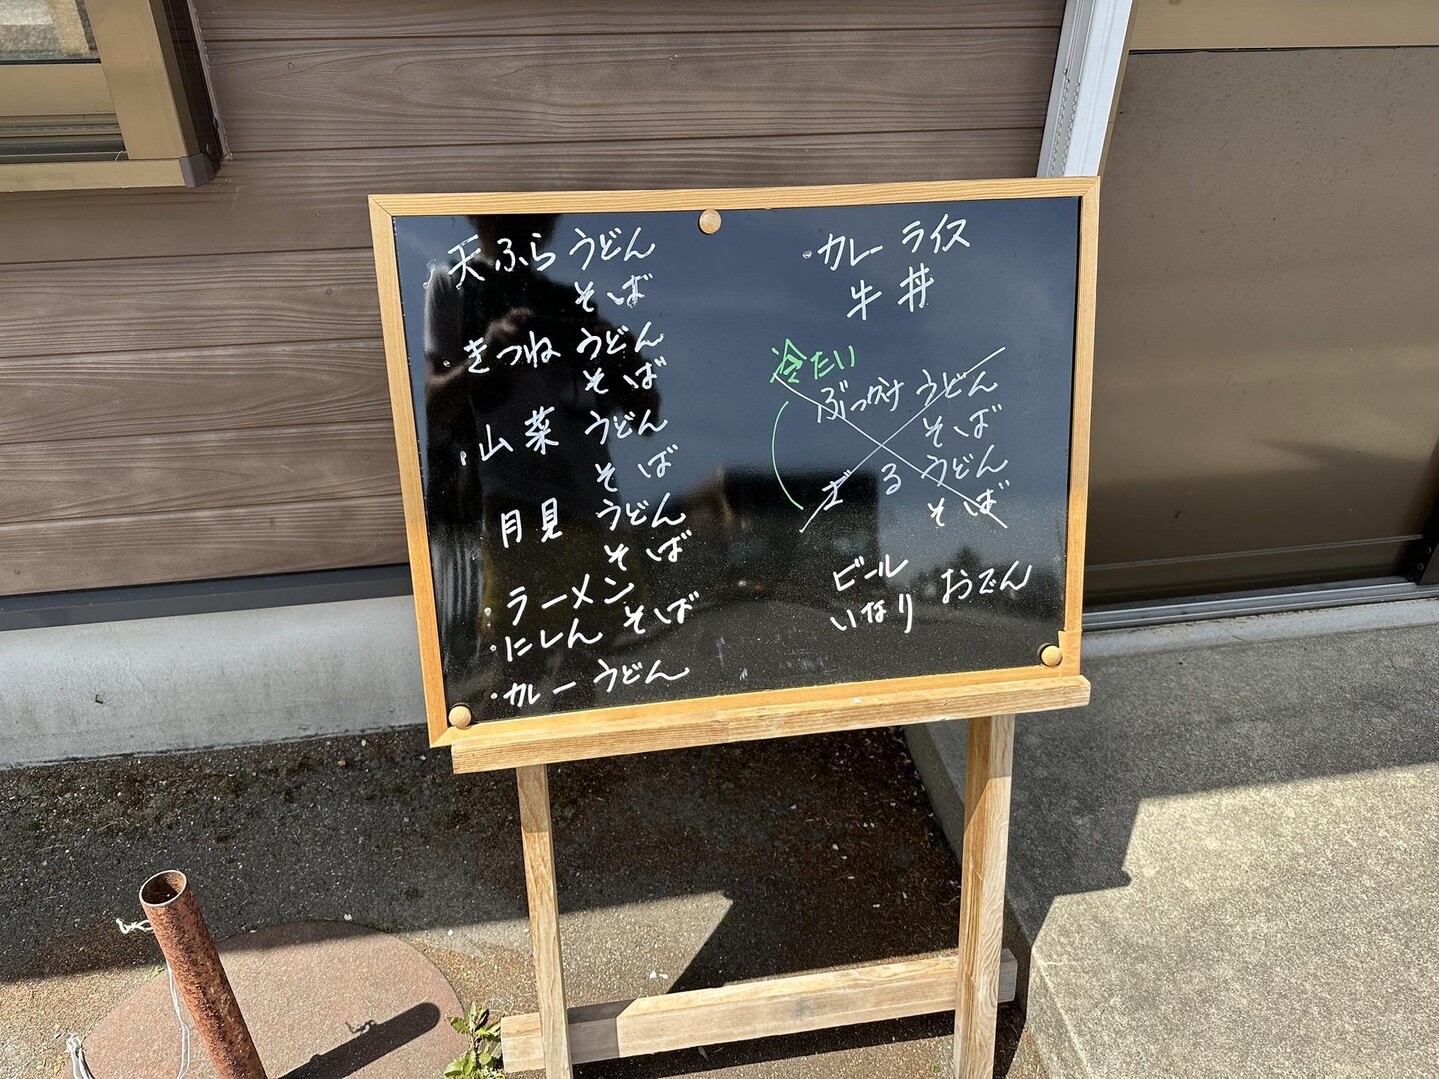 ・天ぷら うどん
そば
・きつね うどん
そば
・山菜 うどん
そば
月見 うどん
そば
・ラーメン
・にしん そば
・カレー うどん
・カレー ライス
牛丼
冷たい
ぶっかけ うどん
そば
ざる うどん
そば
ビール
いなり
おでん